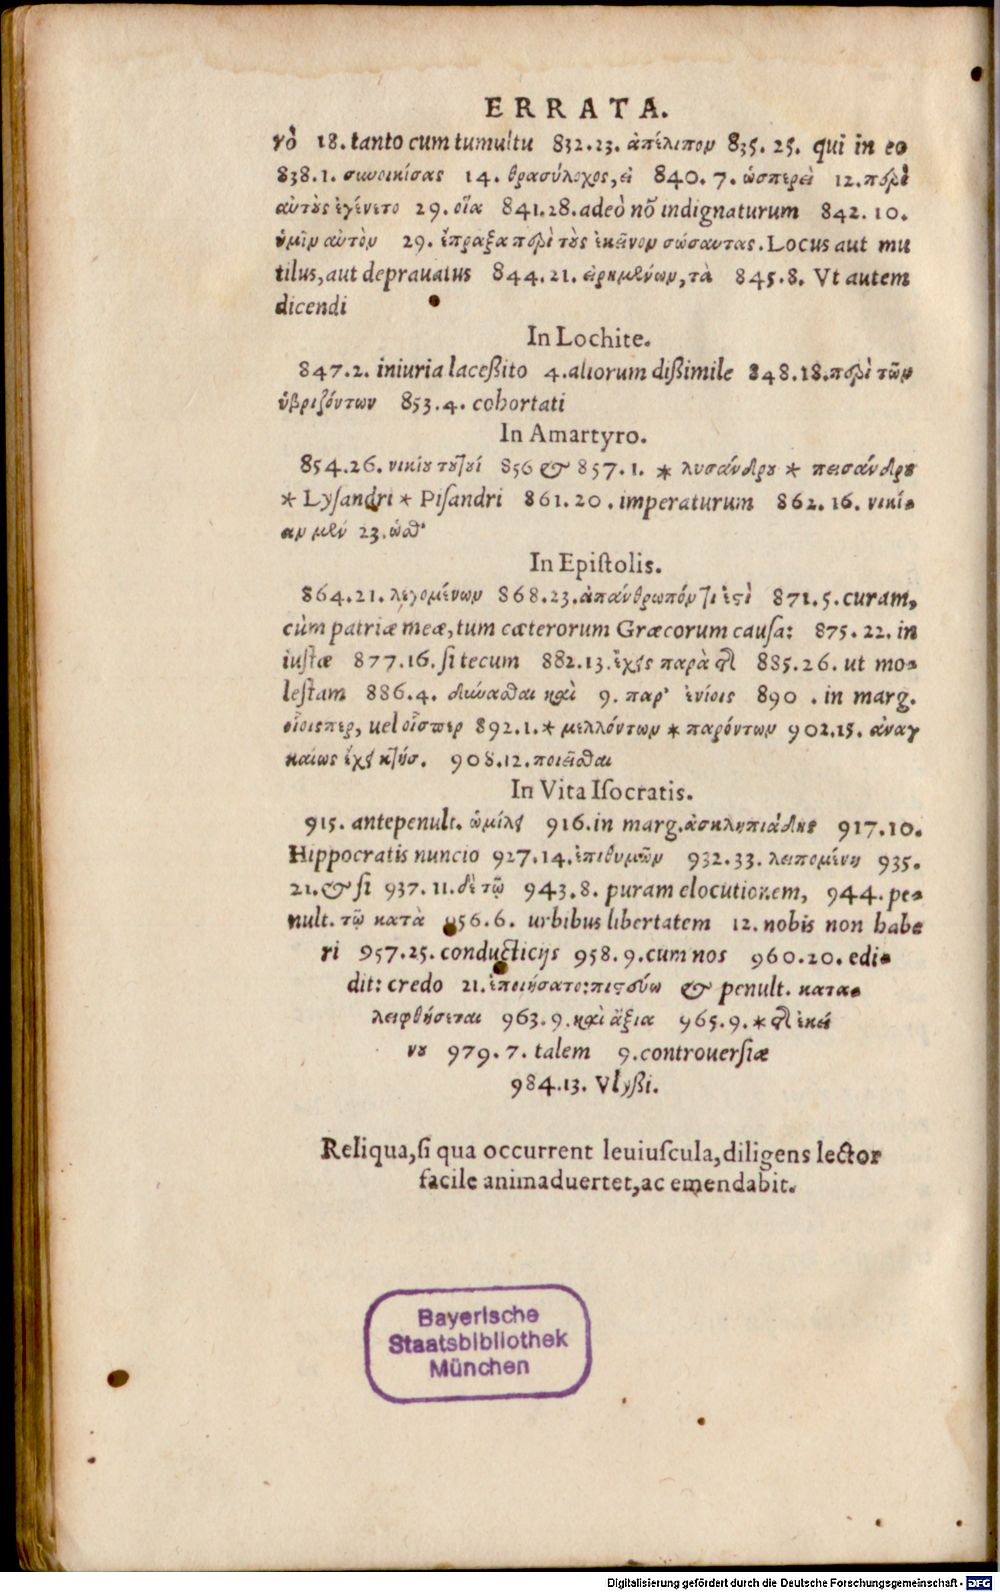 ERRATA.
γὸ 18. tanto cum tumultu 832.23. ἀπέλιπον 835. 25. qui in eo
838.1. συνοικίσας 14. θρασύλοχος, εἰ 840. 7. ὡσπερεὶ 12. περὶ
αὐτοὺς ἐγένετο 29. οἷα 841.28. adeò nō indignaturum 842. 10.
ὑμῖν αὐτὸν 29. ἔπραξα περὶ τοὺς ἐκεῖνον σώσαντας. Locus aut mu
tilus, aut deprauatus 844.21. εἰρημένων, τὰ 845.8. Vt autem
dicendi
In Lochite.
847.2. iniuria laceßito 4. aliorum dißimile 848.18. περὶ τῶν
ὑβριζόντων 853.4. cohortati
In Amartyro.
854.26. νικίου τουτουί 856 & 857.1. * λυσάνδρου * πεισάνδρου
* Lyſandri * Piſandri 861.20. imperaturum 862.16. νικί-
αν μὲν 23. ὡσθ'
In Epiſtolis.
864.21. λεγομένων 868.23. ἀπάνθρωπόν τι ἐστὶ 871.5. curam,
cùm patriæ meæ, tum cæterorum Græcorum cauſa: 875.22. in
iuſtæ 877.16. ſi tecum 882.13. ἔχεις παρὰ 885.26. ut mo-
leſtam 886.4. καὶ 9. παρ' ἐνίοις 890 . in marg.
οἷοισπερ, uel οἷσπερ 892.1. * μελλόντων * παρόντων 902.15. ἀναγ
καίως ἔχει κτήσ. 908.12. ποιεῖσθαι
In Vita Iſocratis.
915. antepenult. ὡμίλει 916. in marg. ἀσκληπιάδης 917.10.
Hippocratis nuncio 927.14. ἐπιθυμῶν 932.33. λειπομένη 935.
21. & ſi 937.11. δὲ τῷ 943.8. puram elocutionem, 944. pe-
nult. τῷ κατὰ 956.6. urbibus libertatem 12. nobis non habe
ri 957.25. conducticijs 958.9. cum nos 960.20. edi-
dit: credo 21. ἐποιήσατο: & penult. κατα-
λειφθήσεται 963.9. καὶ ἄξια 965.9. * ἐκεί
νου 979.7. talem 9. controuerſiæ
984.13. Vlyßi.
Reliqua, ſi qua occurrent leuiuſcula, diligens lector
facile animaduertet, ac emendabit.
Bayerische
Staatsbibliothek
München
Digitalisierung gefördert durch die Deutsche Forschungsgemeinschaft - DFG